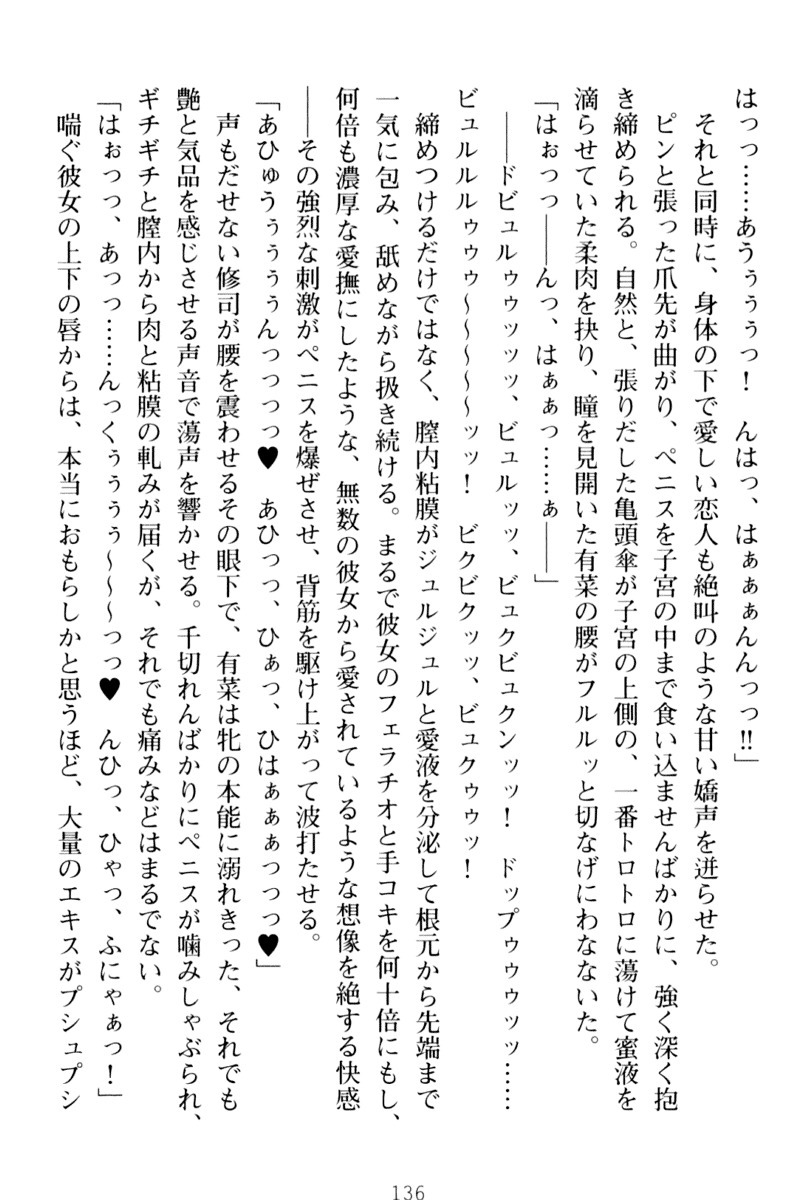 はっっ……あうぅぅぅっ！　んはっ、はぁぁぁんんっっ!!」
　それと同時に、身体の下で愛しい恋人も絶叫のような甘い嬌声を迸らせた。
　ピンと張った爪先が曲がり、ペニスを子宮の中まで食い込ませんばかりに、強く深く抱
き締められる。自然と、張りだした亀頭傘が子宮の上側の、一番トロトロに蕩けて蜜液を
滴らせていた柔肉を抉り、瞳を見開いた有菜の腰がフルルッと切なげにわなないた。
「はぉっっ――んっ、はぁぁっ……ぁ――」
　――ドビュルゥゥッッッ、ビュルッッ、ビュクビュクンッッ！　ドップゥゥゥッッ……
ビュルルルゥゥゥ～～～～～ッッ！　ビクビクッッ、ビュクゥゥッ！
　締めつけるだけではなく、膣内粘膜がジュルジュルと愛液を分泌して根元から先端まで
一気に包み、舐めながら扱き続ける。まるで彼女のフェラチオと手コキを何十倍にもし、
何倍も濃厚な愛撫にしたような、無数の彼女から愛されているような想像を絶する快感
――その強烈な刺激がペニスを爆ぜさせ、背筋を駆け上がって波打たせる。
「あひゅうぅぅぅぅんっっっっ♥　あひっっ、ひぁっ、ひはぁぁぁっっっ♥」
　声もだせない修司が腰を震わせるその眼下で、有菜は牝の本能に溺れきった、それでも
艶と気品を感じさせる声音で蕩声を響かせる。千切れんばかりにペニスが噛みしゃぶられ、
ギチギチと膣内から肉と粘膜の軋みが届くが、それでも痛みなどはまるでない。
「はぉっっ、あっっ……んっくぅぅぅぅ～～～っっ♥　んひっ、ひゃっ、ふにゃぁっ！」
　喘ぐ彼女の上下の唇からは、本当におもらしかと思うほど、大量のエキスがプシュプシ
136